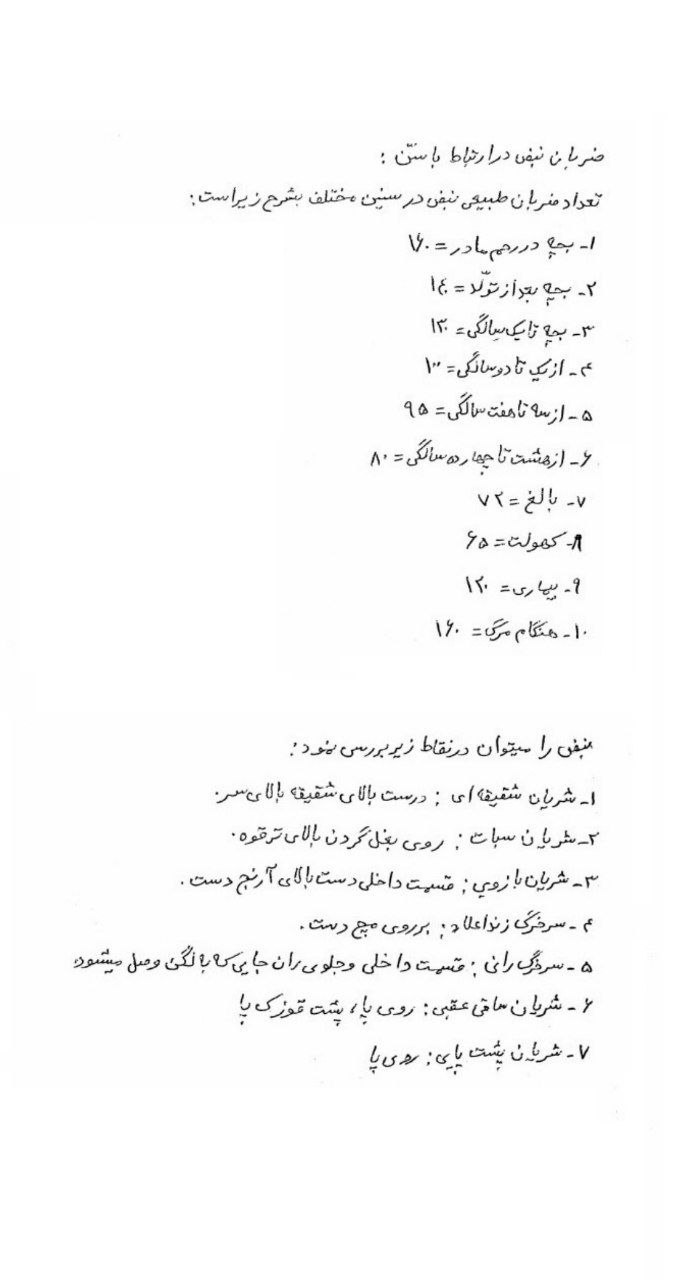 ضربان نبض در ارتباط با سنّ :
تعداد ضربان طبیعی نبض در سنین مختلف بشرح زیر است :
۱- بچه در رحم مادر = ۱۶۰
۲- بچه بعد از تولّد = ۱۴۰
۳- بچه تا یک سالگی = ۱۲۰
۴- از یک تا دو سالگی = ۱۰۰
۵- از سه تا هفت سالگی = ۹۵
۶- از هشت تا چهارده سالگی = ۸۰
۷- بالغ = ۷۲
۸- کهولت = ۶۵
۹- بیماری = ۱۲۰
۱۰- هنگام مرگ = ۱۶۰
نبض را میتوان در نقاط زیر بررسی نمود :
۱- شریان شقیقه ای : درست بالای شقیقه بالای سر.
۲- شریان سبات : روی بغل گردن بالای ترقوه.
۳- شریان بازویی : قسمت داخلی دست بالای آرنج دست.
۴- سرخرگ زند اعلاء : بر روی مچ دست.
۵- سرخرگ رانی : قسمت داخلی و جلوی ران جایی که به لگن وصل میشود
۶- شریان ساقی عقبی : روی پا، پشت قوزک پا
۷- شریان پشت پایی : روی پا